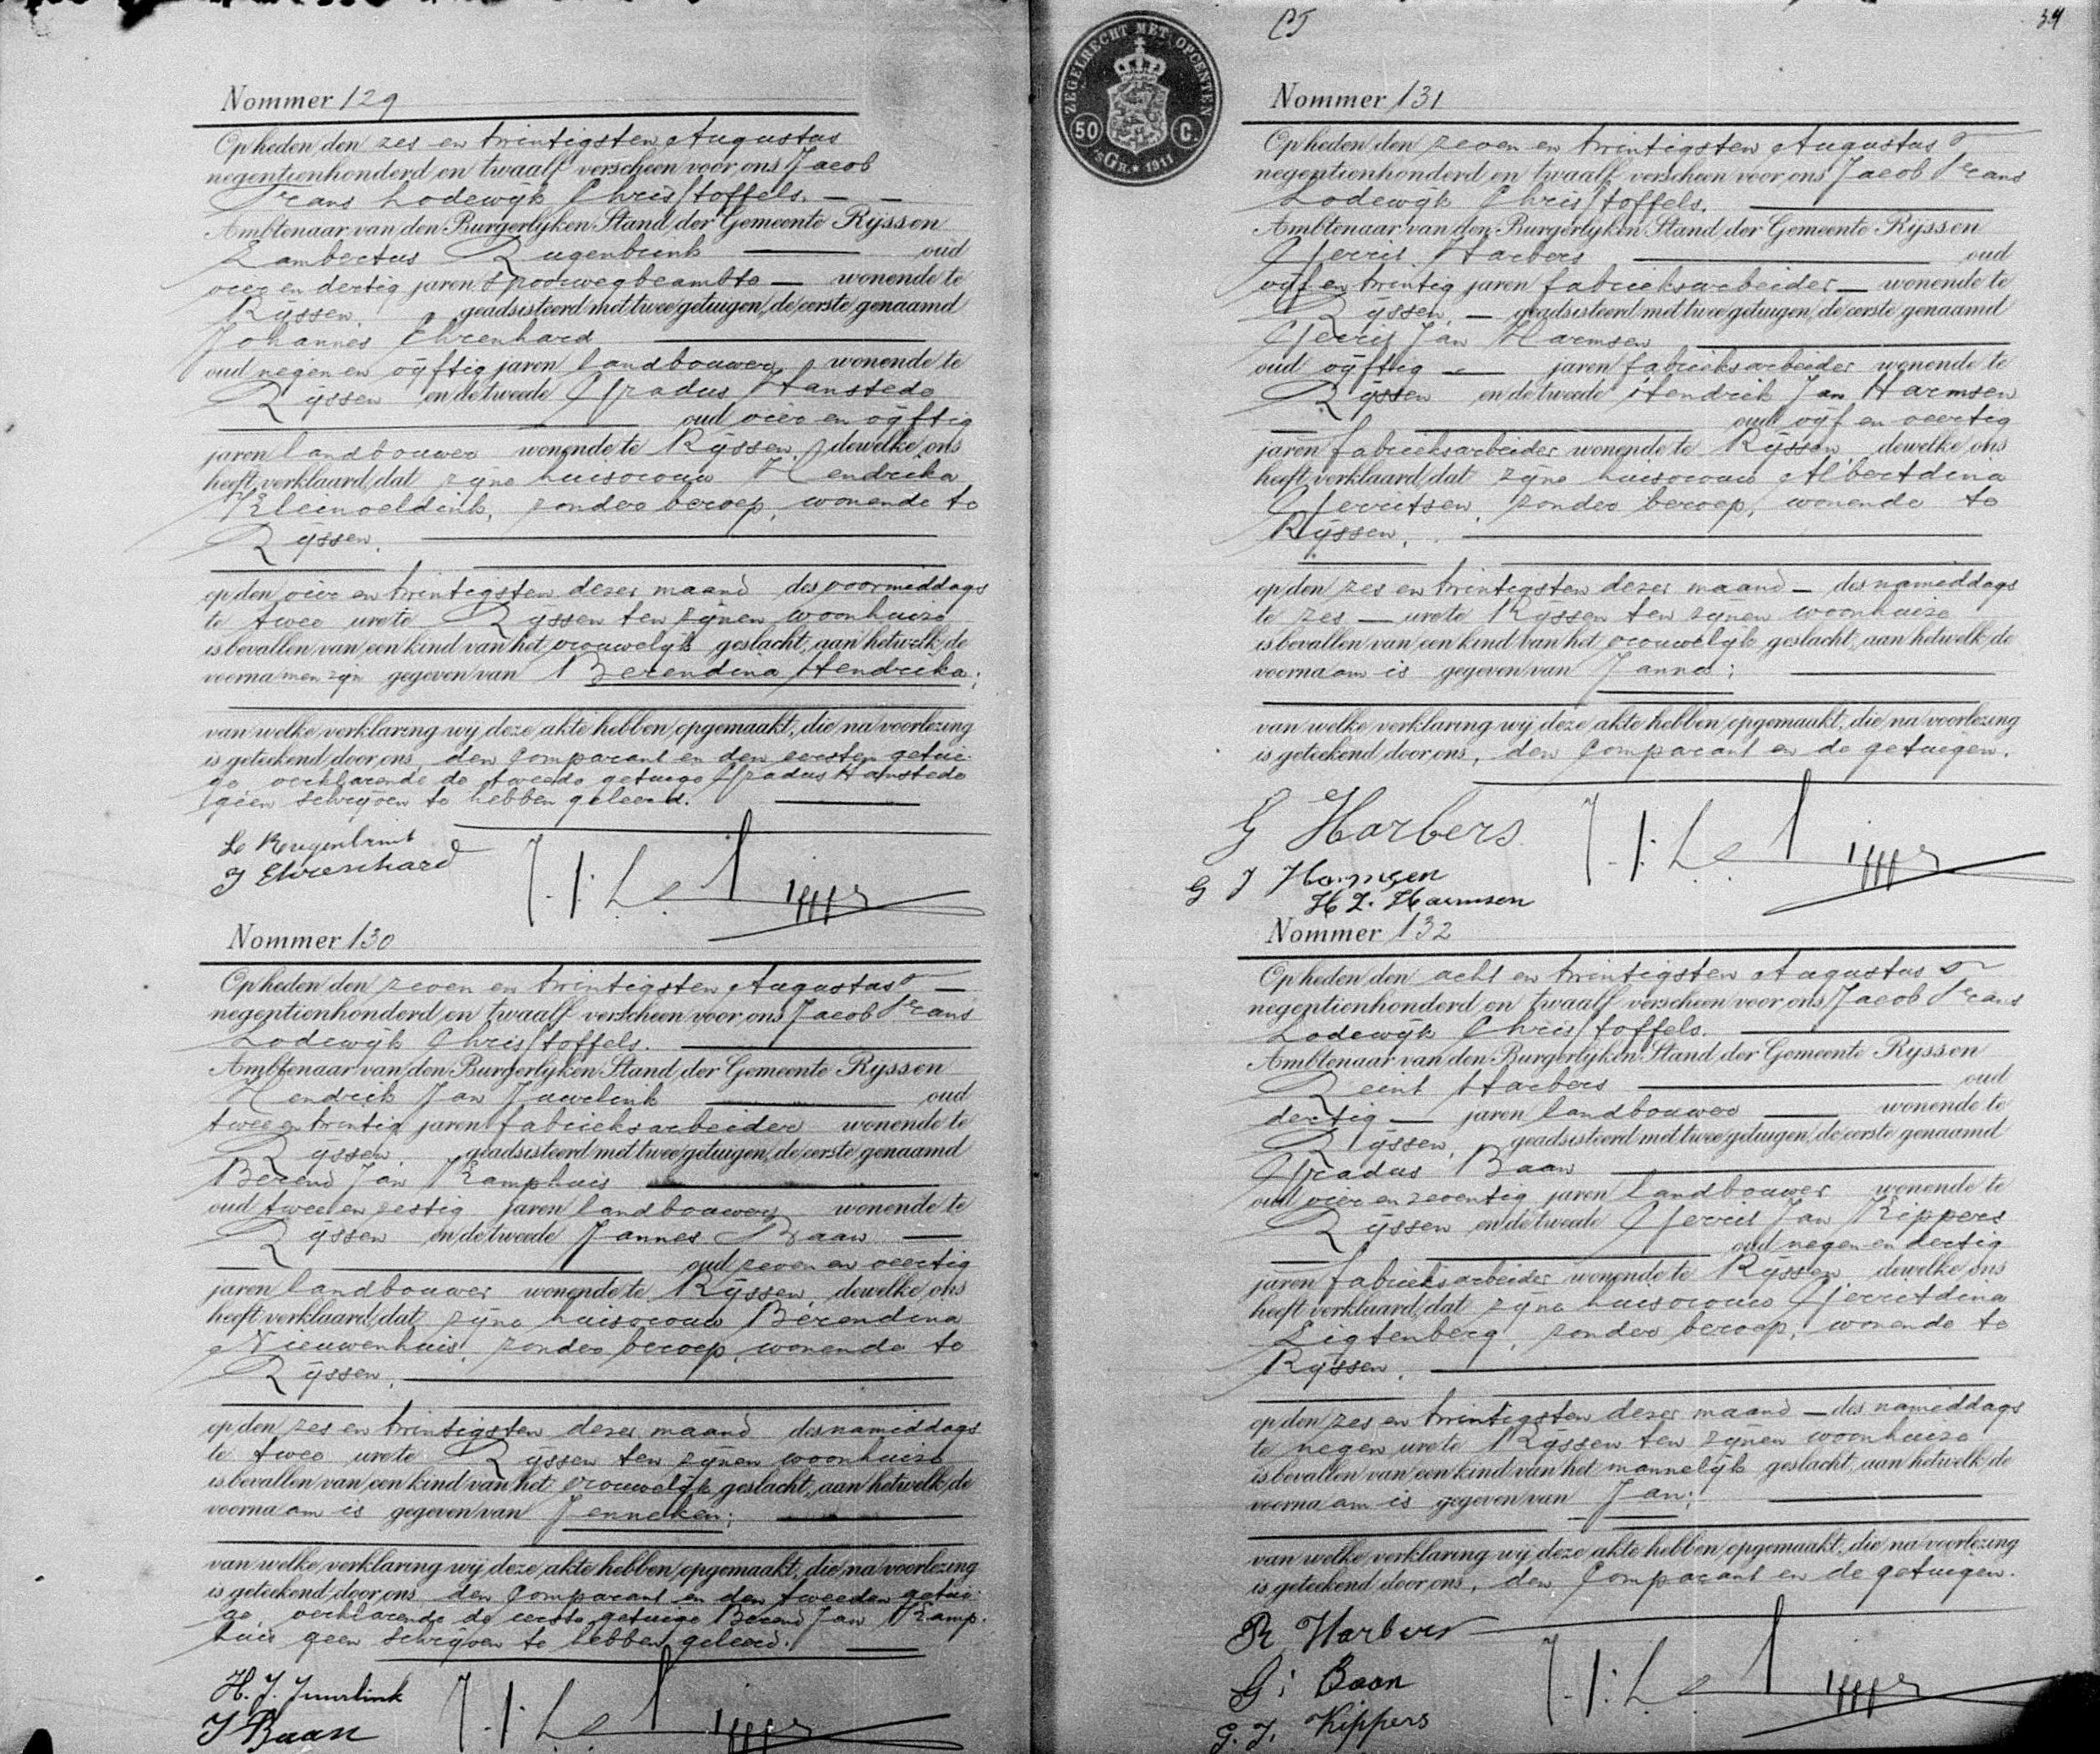 Nommer 129
Op heden den zes en twintigsten Augustus
negentienhonderd en twaalf verscheen voor ons Jacob
Frans Lodewijk Christoffels.
Ambtenaar van den Burgerlyken Stand der Gemeente Ryssen
Lambertus Rugenbrink oud
vier en dertig jaren Spoorwegbeambte wonende te
Ryssen. geadsisteerd met twee getuigen, de eerste genaamd
Johannes Ehrenhard
oud negen en vyftig jaren landbouwer wonende te
Ryssen en de tweede Gradus Hanstede
oud vier en vyftig
jaren landbouwer wonende te Ryssen, dewelke ons
heeft verklaard, dat zyne huisvrouw Hendrika
Kleinveldink, zonder beroep, wonende te
Ryssen.
op den vier en twintigsten dezer maand des voormiddags
te twee ure te Ryssen ten zynen woonhuize
is bevallen van een kind van het vrouwelyk geslacht, aan hetwelk de
voornamen zijn gegeven van Berendina Hendrika;
van welke verklaring wy deze akte hebben opgemaakt, die na voorlezing
is geteekend door ons, den Comparant en den eersten getui-
ge verklarende de tweede getuige Gradus Hanstede
geen schryven te hebben geleerd.
L Rugenbrink
J Ehrenhard
Nommer 130
Op heden den zeven en twintigsten Augustus
negentienhonderd en twaalf verscheen voor ons Jacob Frans
Lodewijk Christoffels.
Ambtenaar van den Burgerlyken Stand der Gemeente Ryssen
Hendrik Jan Juurlink oud
twee en twintig jaren fabrieksarbeider wonende te
Ryssen. geadsisteerd met twee getuigen, de eerste genaamd
Berend Jan Kamphuis
oud twee en zestig jaren landbouwer wonende te
Ryssen en de tweede Jannes Baan
oud zeven en veertig
jaren landbouwer wonende te Ryssen, dewelke ons
heeft verklaard, dat zyne huisvrouw Berendina
Nieuwenhuis, zonder beroep, wonende te
Ryssen.
op den zes en twintigsten dezer maand des namiddags
te twee ure te Ryssen ten zynen woonhuize
is bevallen van een kind van het vrouwelyk geslacht, aan hetwelk de
voornaam is gegeven van Jenneken;
van welke verklaring wy deze akte hebben opgemaakt, die na voorlezing
is geteekend door ons, den Comparant en den tweeden getui-
ge, verklarende de eerste getuige Berend Jan Kamp-
huis geen schryven te hebben geleerd.
H. J. Juurlink
J Baan
ZEGELRECHT MET OPCENTEN
50 C.
'sGR. 1911
34
Nommer 131
Op heden den zeven en twintigsten Augustus
negentienhonderd en twaalf verscheen voor ons Jacob Frans
Lodewijk Christoffels.
Ambtenaar van den Burgerlyken Stand der Gemeente Ryssen
Gerrit Harbers oud
vyf en twintig jaren fabrieksarbeider wonende te
Ryssen. geadsisteerd met twee getuigen, de eerste genaamd
Gerrit Jan Harmsen
oud vyftig jaren fabrieksarbeider wonende te
Ryssen en de tweede Hendrik Jan Harmsen
oud vyf en veertig
jaren fabrieksarbeider wonende te Ryssen, dewelke ons
heeft verklaard, dat zyne huisvrouw Albertdina
Gerritsen, zonder beroep, wonende te
Ryssen.
op den zes en twintigsten dezer maand des namiddags
te zes ure te Ryssen ten zynen woonhuize
is bevallen van een kind van het vrouwelyk geslacht, aan hetwelk de
voornaam is gegeven van Janna;
van welke verklaring wy deze akte hebben opgemaakt, die na voorlezing
is geteekend door ons, den Comparant en de getuigen.
G Harbers
G J Harmsen
H J. Harmsen
Nommer 132
Op heden den acht en twintigsten Augustus
negentienhonderd en twaalf verscheen voor ons Jacob Frans
Lodewijk Christoffels.
Ambtenaar van den Burgerlyken Stand der Gemeente Ryssen
Reint Harbers oud
dertig jaren landbouwer wonende te
Ryssen. geadsisteerd met twee getuigen, de eerste genaamd
Gradus Baan
oud vier en zeventig jaren landbouwer wonende te
Ryssen en de tweede Gerrit Jan Kippers
oud negen en dertig
jaren fabrieksarbeider wonende te Ryssen, dewelke ons
heeft verklaard, dat zyne huisvrouw Gerritdina
Ligtenberg, zonder beroep, wonende te
Ryssen.
op den zes en twintigsten dezer maand des namiddags
te negen ure te Ryssen ten zynen woonhuize
is bevallen van een kind van het mannelyk geslacht, aan hetwelk de
voornaam is gegeven van Jan;
van welke verklaring wy deze akte hebben opgemaakt, die na voorlezing
is geteekend door ons, den Comparant en de getuigen.
R Harbers
G: Baan
G. J. Kippers